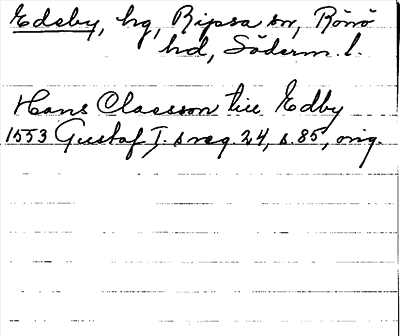 Edeby, hg, Ripsa sn, Rönö
hd, Söderm. l.
Hans Claesson till Edby
1553 Gustaf I. s reg. 24, s. 85, orig.